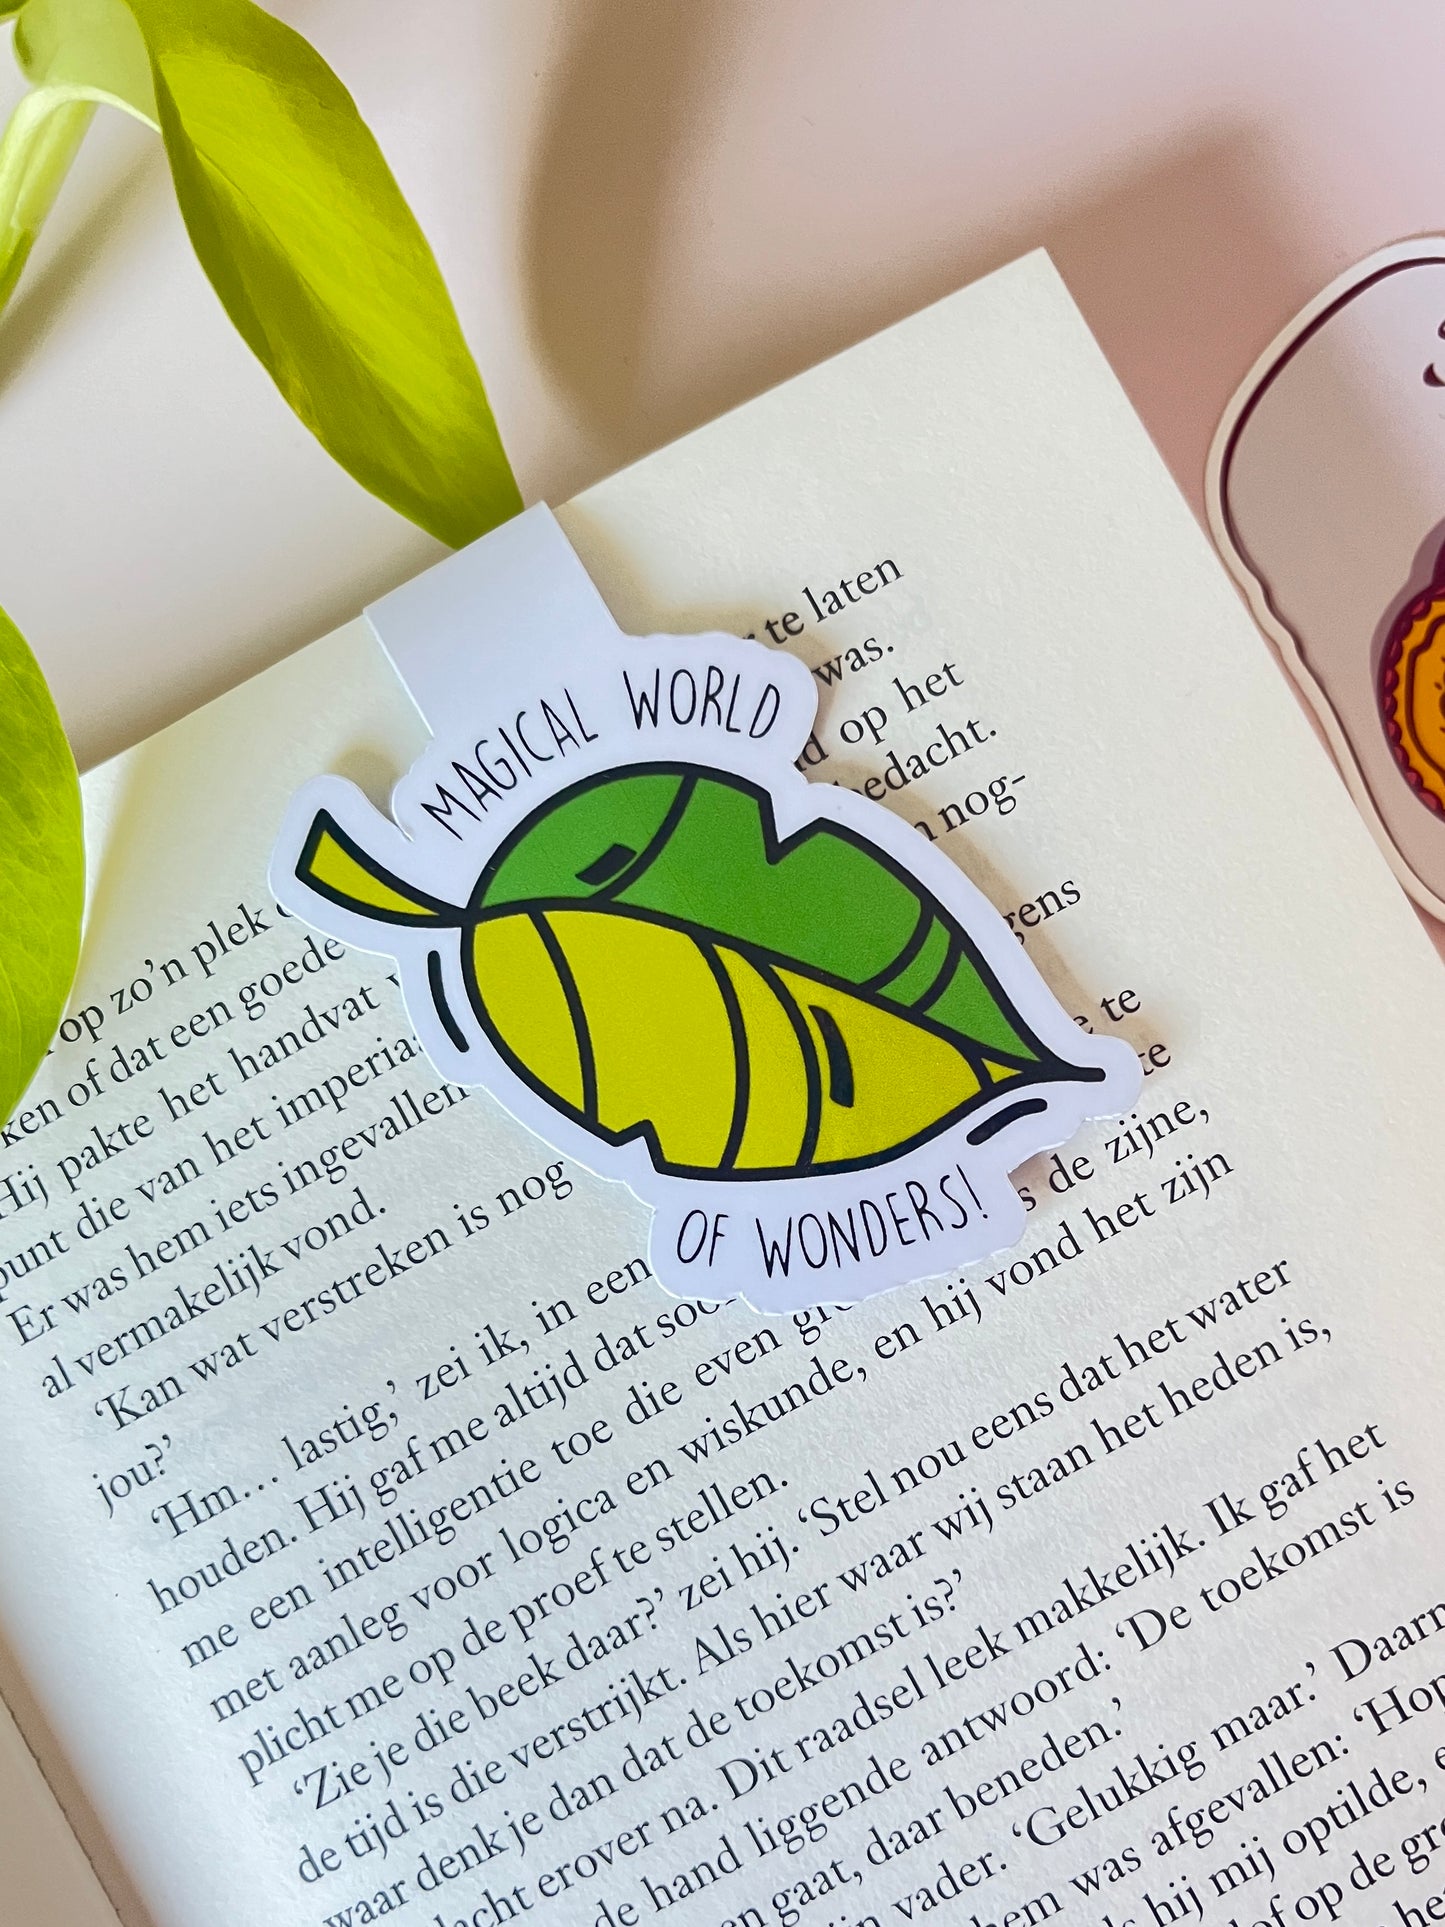 MAGICAL WORLD
OF WONDERS!
te laten
was.
op het
bedacht.
nog-
op zo'n plek
ken of dat een goede
Hij pakte het handvat
punt die van het
Er was hem iets ingevallen
te
te
al vermakelijk vond.
'Kan wat verstreken is nog
jou?'
'Hm... lastig,' zei ik, in een
de zijne,
houden. Hij gaf me altijd dat
me een intelligentie toe die even
vond het zijn
met aanleg voor logica en wiskunde, en hij
plicht me op de proef te stellen.
'Zie je die beek daar?' zei hij. 'Stel nou eens dat het water
de tijd is die verstrijkt. Als hier waar wij staan het heden is,
waar denk je dan dat de toekomst is?'
erover na. Dit raadsel leek makkelijk. Ik gaf het
de hand liggende antwoord: 'De toekomst is
gaat, daar beneden.'
vader. 'Gelukkig maar.'
hem was afgevallen:
hij mij optilde,
op de